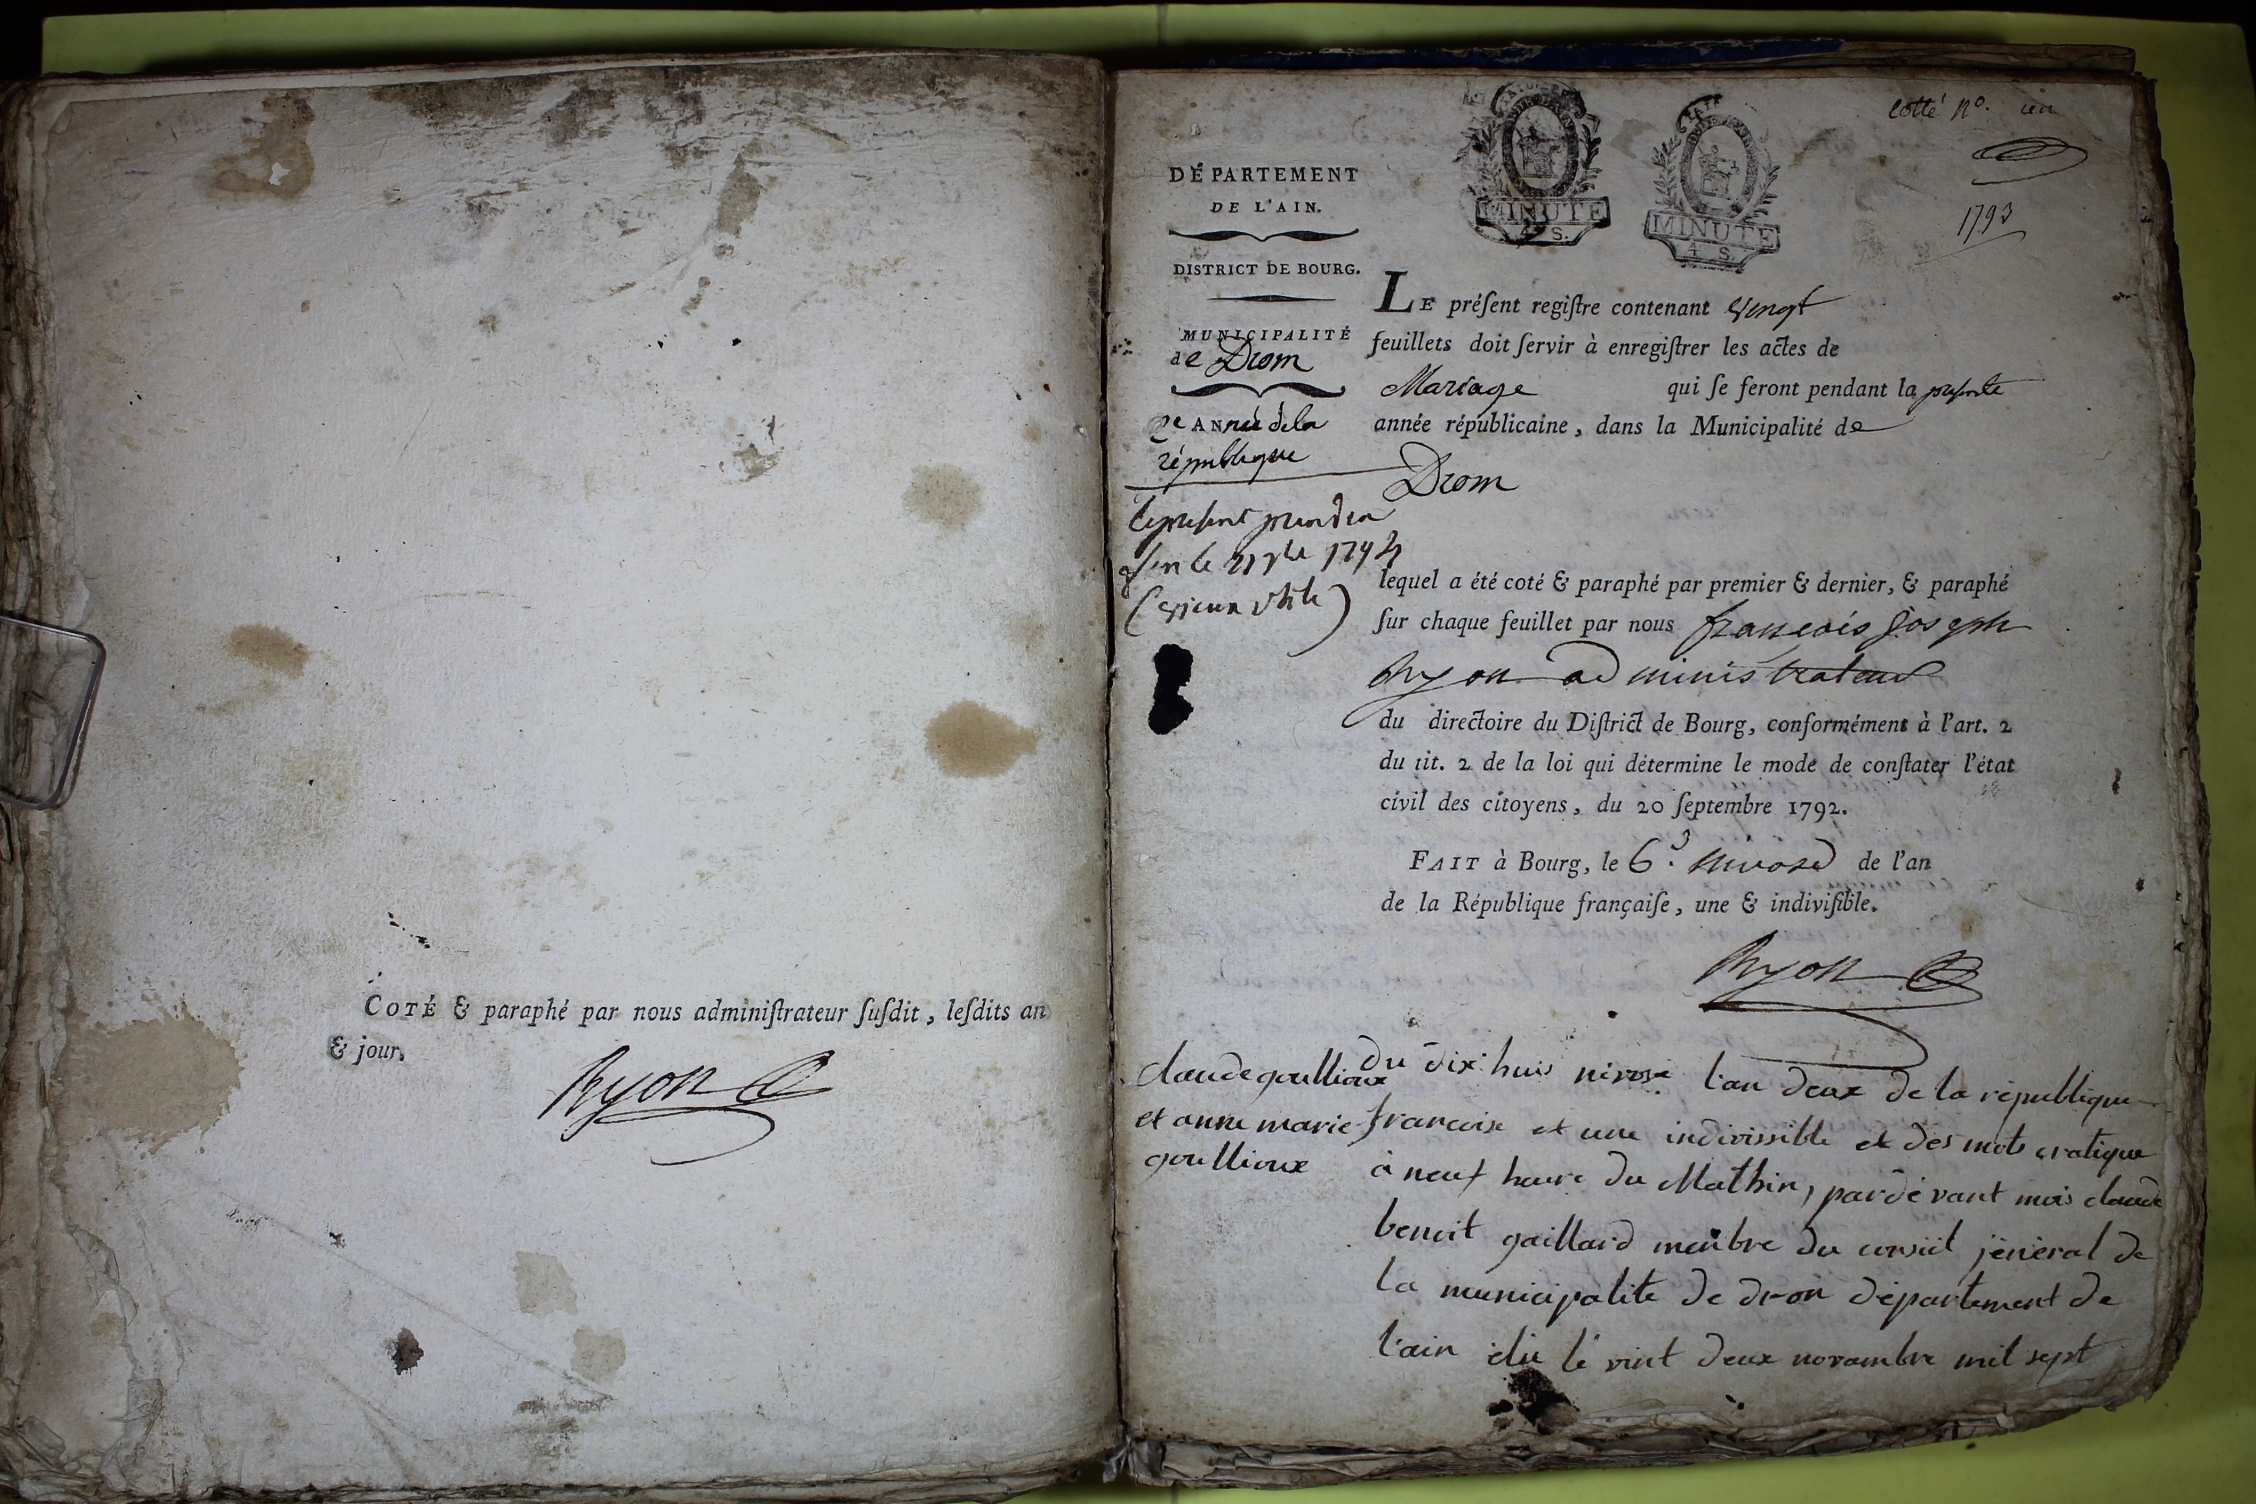 COTÉ & paraphé par nous adminiſtrateur ſuſdit, leſdits an
& jour.
Ryon
cotté n°. un
1793
MINUTE
4 S.
MINUTE
4 S.
DÉPARTEMENT
DE L'AIN.
DISTRICT DE BOURG.
MUNICIPALITÉ
de Drom
2e ANnée de la
république
le present
1794
LE préſent regiſtre contenant vingt
feuillets doit ſervir à enregiſtrer les actes de
Mariage qui ſe feront pendant la presente
année républicaine, dans la Municipalité de
Drom
lequel a été coté & paraphé par premier & dernier, & paraphé
ſur chaque feuillet par nous françois joseph
Ryon administrateur
du directoire du Diſtrict de Bourg, conformément à l'art. 2
du tit. 2 de la loi qui détermine le mode de conſtater l'état
civil des citoyens, du 20 ſeptembre 1792.
FAIT à Bourg, le 6 nivose de l'an
de la République françaiſe, une & indiviſible.
Ryon
claude goullioux
et anne marie
goullioux
du dix huis nivose l'an deux de la république
francaise et une indivissible et des mots cratique
à neuf heure du Mathin, pardevant mois claude
benoit gaillard menbre du consiel jénéral de
la municipalite de dron département de
l'ain élu le vint deux novambre mil sept